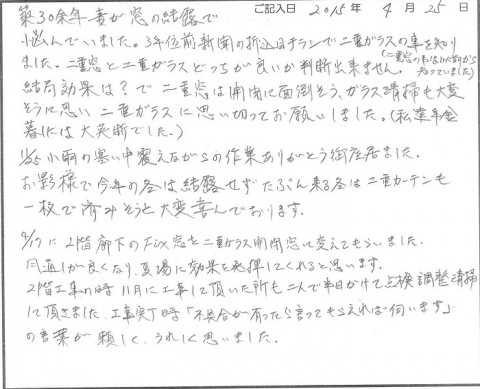 ご記入日 2015年 4月 25日
築30余年 妻が窓の結露で
悩んでいました。3年位前新聞の折込日チラシで二重ガラスの事を知り
ました。二重窓と二重ガラスどっちが良いか判断出来ません。(二重窓の事は以前から知っていました)
結局効果は?で二重窓は開閉に面倒そう、ガラス清掃も大変
そうに思い 二重ガラスに思い切ってお願いしました。(私達年金
暮には大英断でした。)
11/25 小雨の寒い中震えながらの作業ありがとう御座居ました。
お影様で今年の冬は結露せず たぶん来る冬は二重カーテンも
一枚で済みそうと大変喜んでおります。
4/17に2階廊下のFix窓を二重ガラス開閉窓に変えてもらいました。
風通しが良くなり、夏場に効果を発揮してくれると思います。
2階工事の時 11月に工事して頂いた所も二人で半日かけて点検調整清掃
して頂きました。工事完了時「不具合が有ったら言ってもらえれば伺います」
の言葉が頼しく、うれしく思いました。